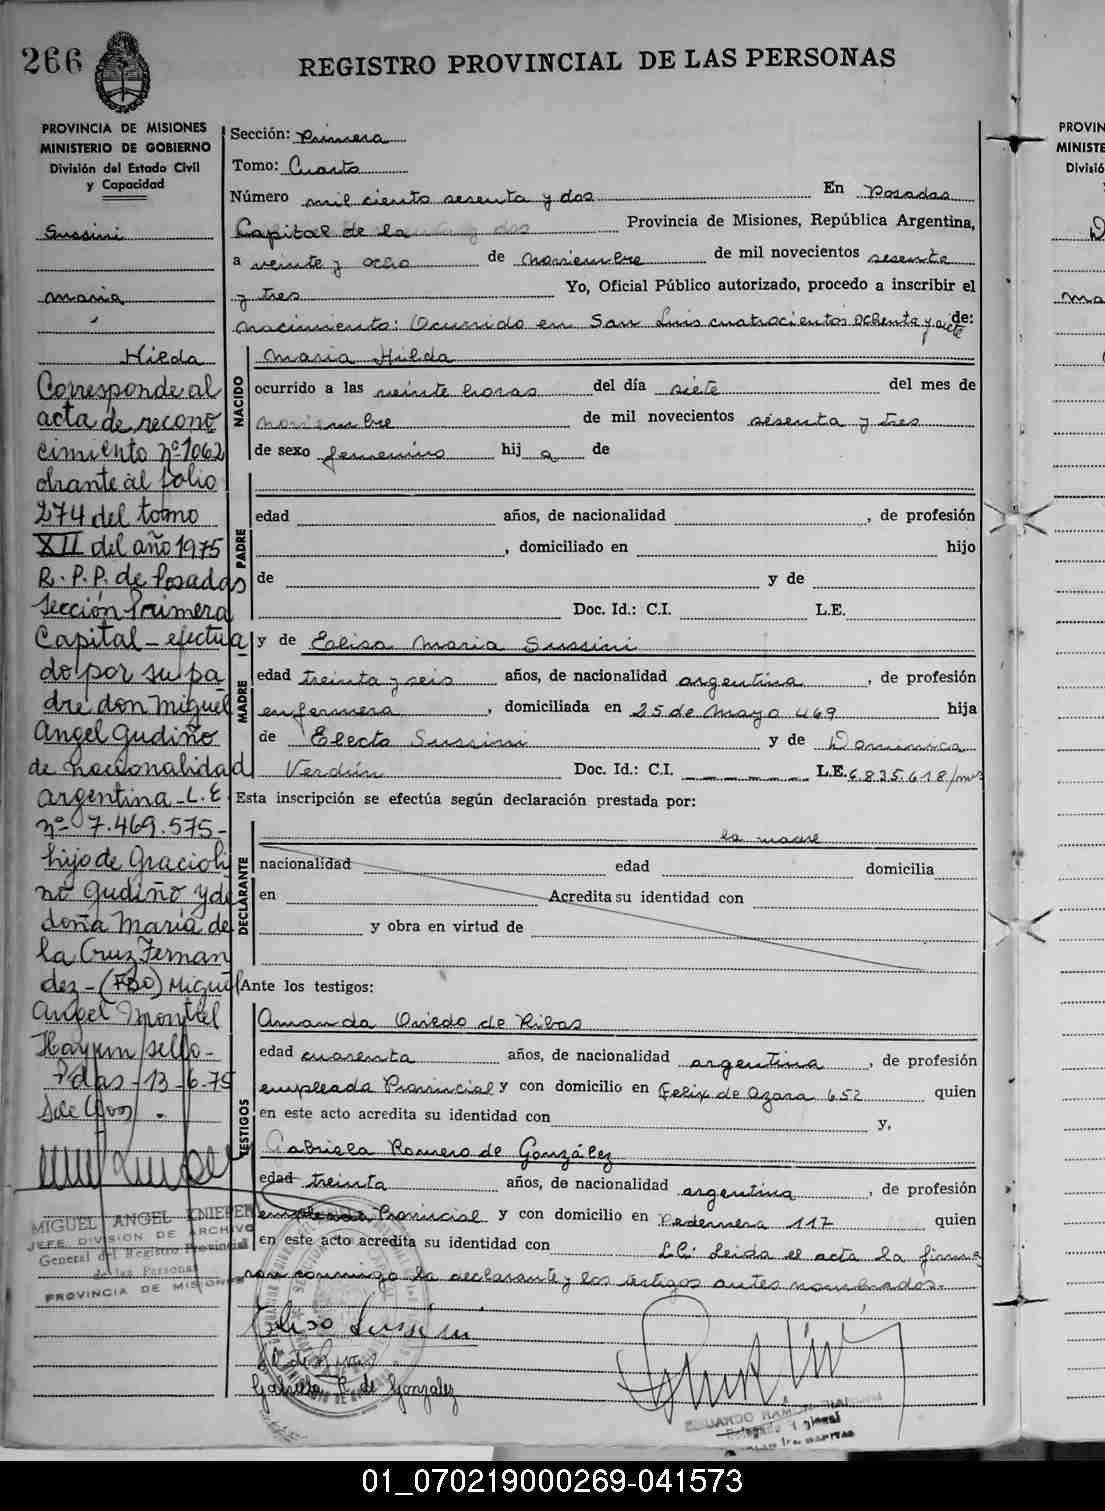 266
REGISTRO PROVINCIAL DE LAS PERSONAS
PROVINCIA DE MISIONES
MINISTERIO DE GOBIERNO
División del Estado Civil
y Capacidad
Sussini
Maria
Hilda
Corresponde al
acta de recono
cimiento nº 1062
obrante al folio
274 del tomo
XII del año 1975
R.P.P. de Posadas
Sección Primera
Capital - efectua
do por su pa
dre don Miguel
Angel Gudiño
de nacionalidad
argentina - L.E
nº 7.469.575-
hijo de Gracioli
no Gudiño y de
doña Maria de
la Cruz Fernan
dez - (FDO) Miguel
Angel Montiel
Hay un sello -
Pdas - 13-6-75
MIGUEL ANGEL KNIEPER
JEFE DIVISION DE ARCHIVO
General del Registro Provincial
de las Personas
PROVINCIA DE MISIONES
Sección: Primera
Tomo: Cuarto
Número mil ciento sesenta y dos En Posadas
Capital de la Provincia de Misiones, República Argentina,
a veinte y ocho de noviembre de mil novecientos sesenta
y tres Yo, Oficial Público autorizado, procedo a inscribir el
nacimiento: Ocurrido en San Luis cuatrocientos ochenta y siete de:
NACIDO
Maria Hilda
ocurrido a las veinte horas del día siete del mes de
noviembre de mil novecientos sesenta y tres
de sexo femenino hij a de
PADRE
edad años, de nacionalidad , de profesión
, domiciliado en hijo
de y de
Doc. Id.: C.I. L.E.
MADRE
y de Elisa Maria Sussini
edad treinta y seis años, de nacionalidad argentina , de profesión
enfermera , domiciliada en 25 de Mayo 469 hija
de Electo Sussini y de Dominica
Verdún Doc. Id.: C.I. L.E. 6.835.618/mnes
Esta inscripción se efectúa según declaración prestada por:
DECLARANTE
la madre
nacionalidad edad domicilia
en Acredita su identidad con
y obra en virtud de
Ante los testigos:
TESTIGOS
Amanda Oviedo de Ribas
edad cuarenta años, de nacionalidad argentina , de profesión
empleada Provincial y con domicilio en Felix de Azara 652 quien
en este acto acredita su identidad con y,
Gabriela Romero de González
edad treinta años, de nacionalidad argentina , de profesión
empleada Provincial y con domicilio en Pedernera 117 quien
en este acto acredita su identidad con L.C: Leida el acta la firma
con conmigo la declarante y los testigos antes nombrados.
Elisa Sussini
Gabriela R. de Gonzalez
EDUARDO RAMON
PROVIN
MINISTE
Divisió
01_070219000269-041573